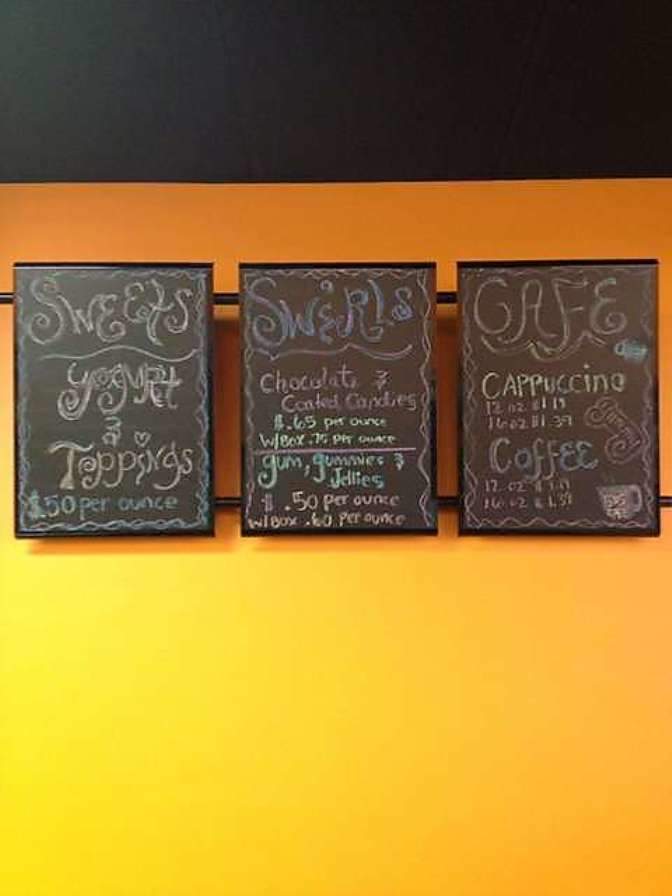 Sweets
Yogurt
&
Toppings
$.50 per ounce
Swirls
Chocolate &
Coated Candies
$.65 per ounce
w/Box .75 per ounce
Gum, Gummies &
Jellies
$ .50 per ounce
w/Box .60 per ounce
CAFE
CAPPUCCINO
12 oz $1.19
16 oz $1.39
Coffee
12 oz $1.19
16 oz $1.39